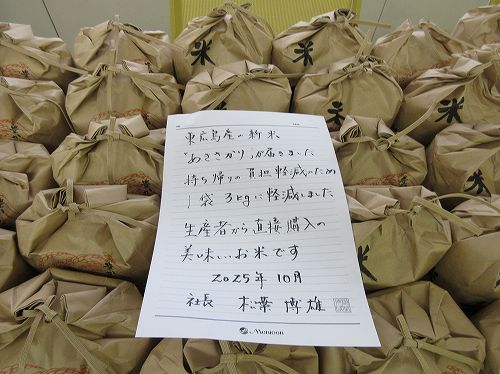 東広島産の新米
"あきさかり"が届きました
持ち帰りの負担軽減のため
1袋3kgに軽減しました
生産者から直接購入の
美味しいお米です
2025年10月
社長 松葉 博雄
Menicon
米
米
米
米
米
米
米